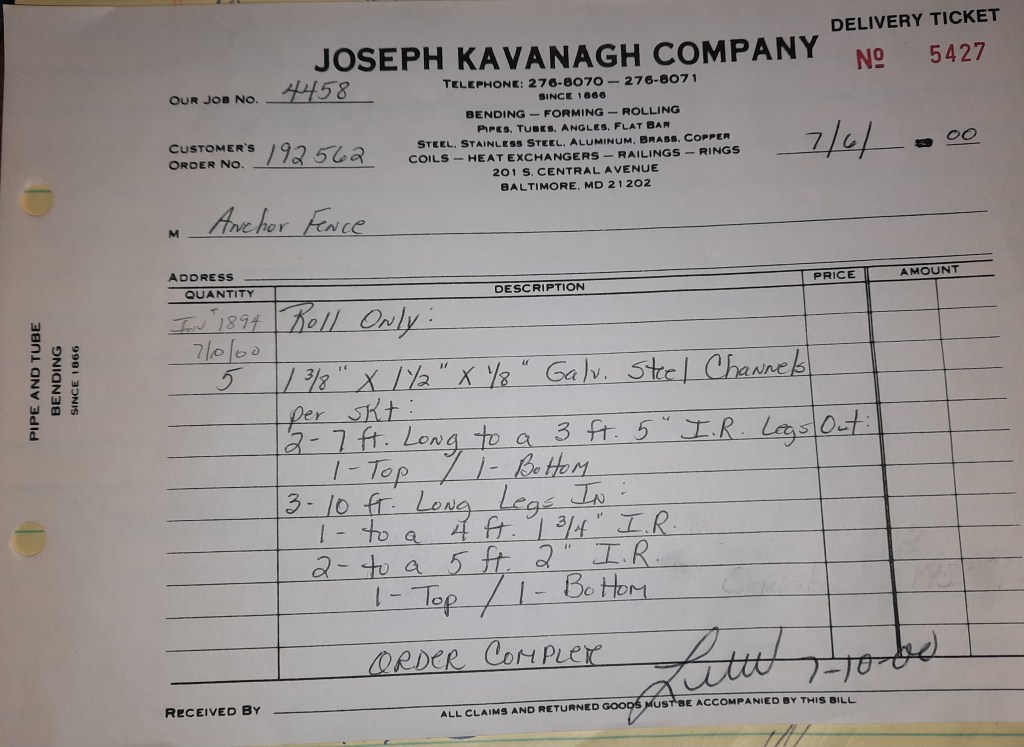 DELIVERY TICKET
JOSEPH KAVANAGH COMPANY
Nº 5427
TELEPHONE: 276-8070 — 276-8071
SINCE 1866
OUR JOB NO. 4458
BENDING — FORMING — ROLLING
PIPES, TUBES, ANGLES, FLAT BAR
STEEL, STAINLESS STEEL, ALUMINUM, BRASS, COPPER
COILS — HEAT EXCHANGERS — RAILINGS — RINGS
201 S. CENTRAL AVENUE
BALTIMORE, MD 21202
CUSTOMER'S
ORDER NO. 192562
7/6/ 00
M Anchor Fence
ADDRESS
QUANTITY DESCRIPTION PRICE AMOUNT
Inv# 1894 Roll Only:
7/10/00
5 1 3/8" X 1 1/2" X 1/8" Galv. Steel Channels
per SKt:
2-7 ft. Long to a 3 ft. 5" I.R. Legs Out:
1-Top / 1-Bottom
3-10 ft. Long Legs In:
1- to a 4 ft. 1 3/4" I.R.
2- to a 5 ft. 2" I.R.
1-Top / 1-Bottom
ORDER COMPLETE
7-10-00
RECEIVED BY
ALL CLAIMS AND RETURNED GOODS MUST BE ACCOMPANIED BY THIS BILL
PIPE AND TUBE
BENDING
SINCE 1866